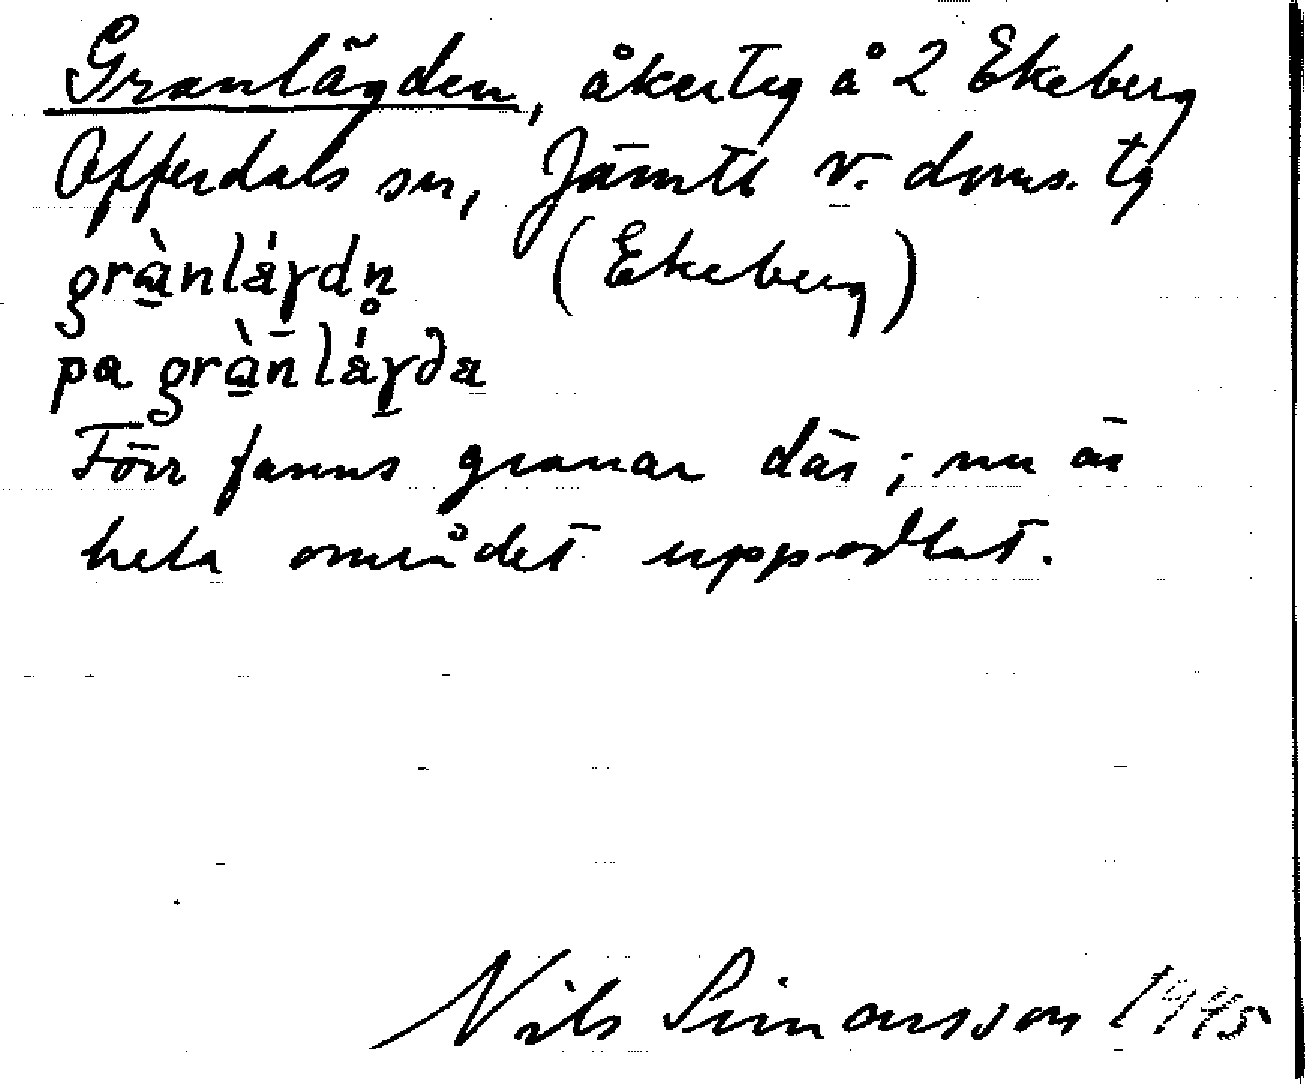 Granlägden, åkerteg å 2 Ekeberg
Offerdals sn, Jämtl v. doms. tg
grànláɣdn̥ (Ekeberg)
pa grànláɣda
Förr fanns granar där; nu är
hela området uppodlat.
Nils Simonsson 1945